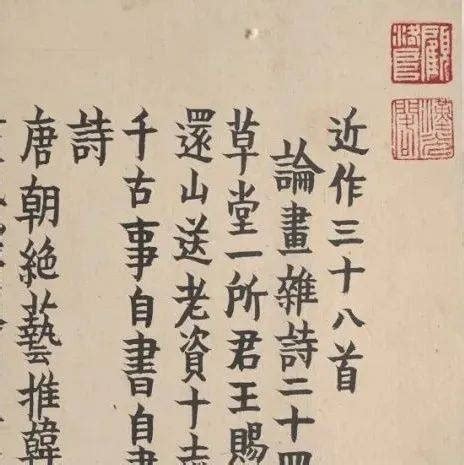 顧洛阜
漢光閣
近作三十八首
論畫雜詩二十四
草堂一所君王賜
還山送老資十志
千古事自書自
詩
唐朝絕藝推韓